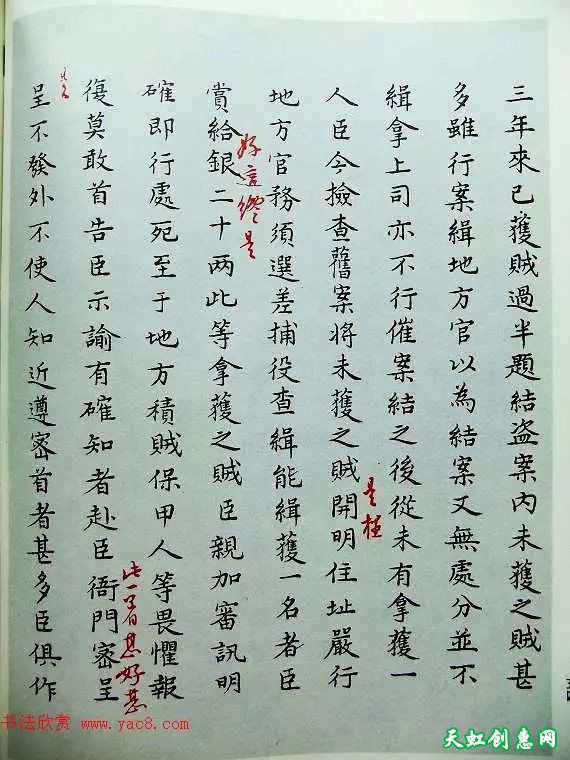 三年來已獲賊過半題結盜案內未獲之賊甚
多雖行案緝地方官以為結案又無處分並不
緝拿上司亦不行催案結之後從未有拿獲一
人臣今撿查舊案將未獲之賊開明住址嚴行
是極
地方官務須選差捕役查緝能緝獲一名者臣
好這纔是
賞給銀二十两此等拿獲之賊臣親加審訊明
確即行處死至于地方積賊保甲人等畏懼報
此一着甚好甚
復莫敢首告臣示諭有確知者赴臣衙門密呈
呈不發外不使人知近遵密首者甚多臣俱作
书法欣赏 www.yac8.com
天虹创惠网